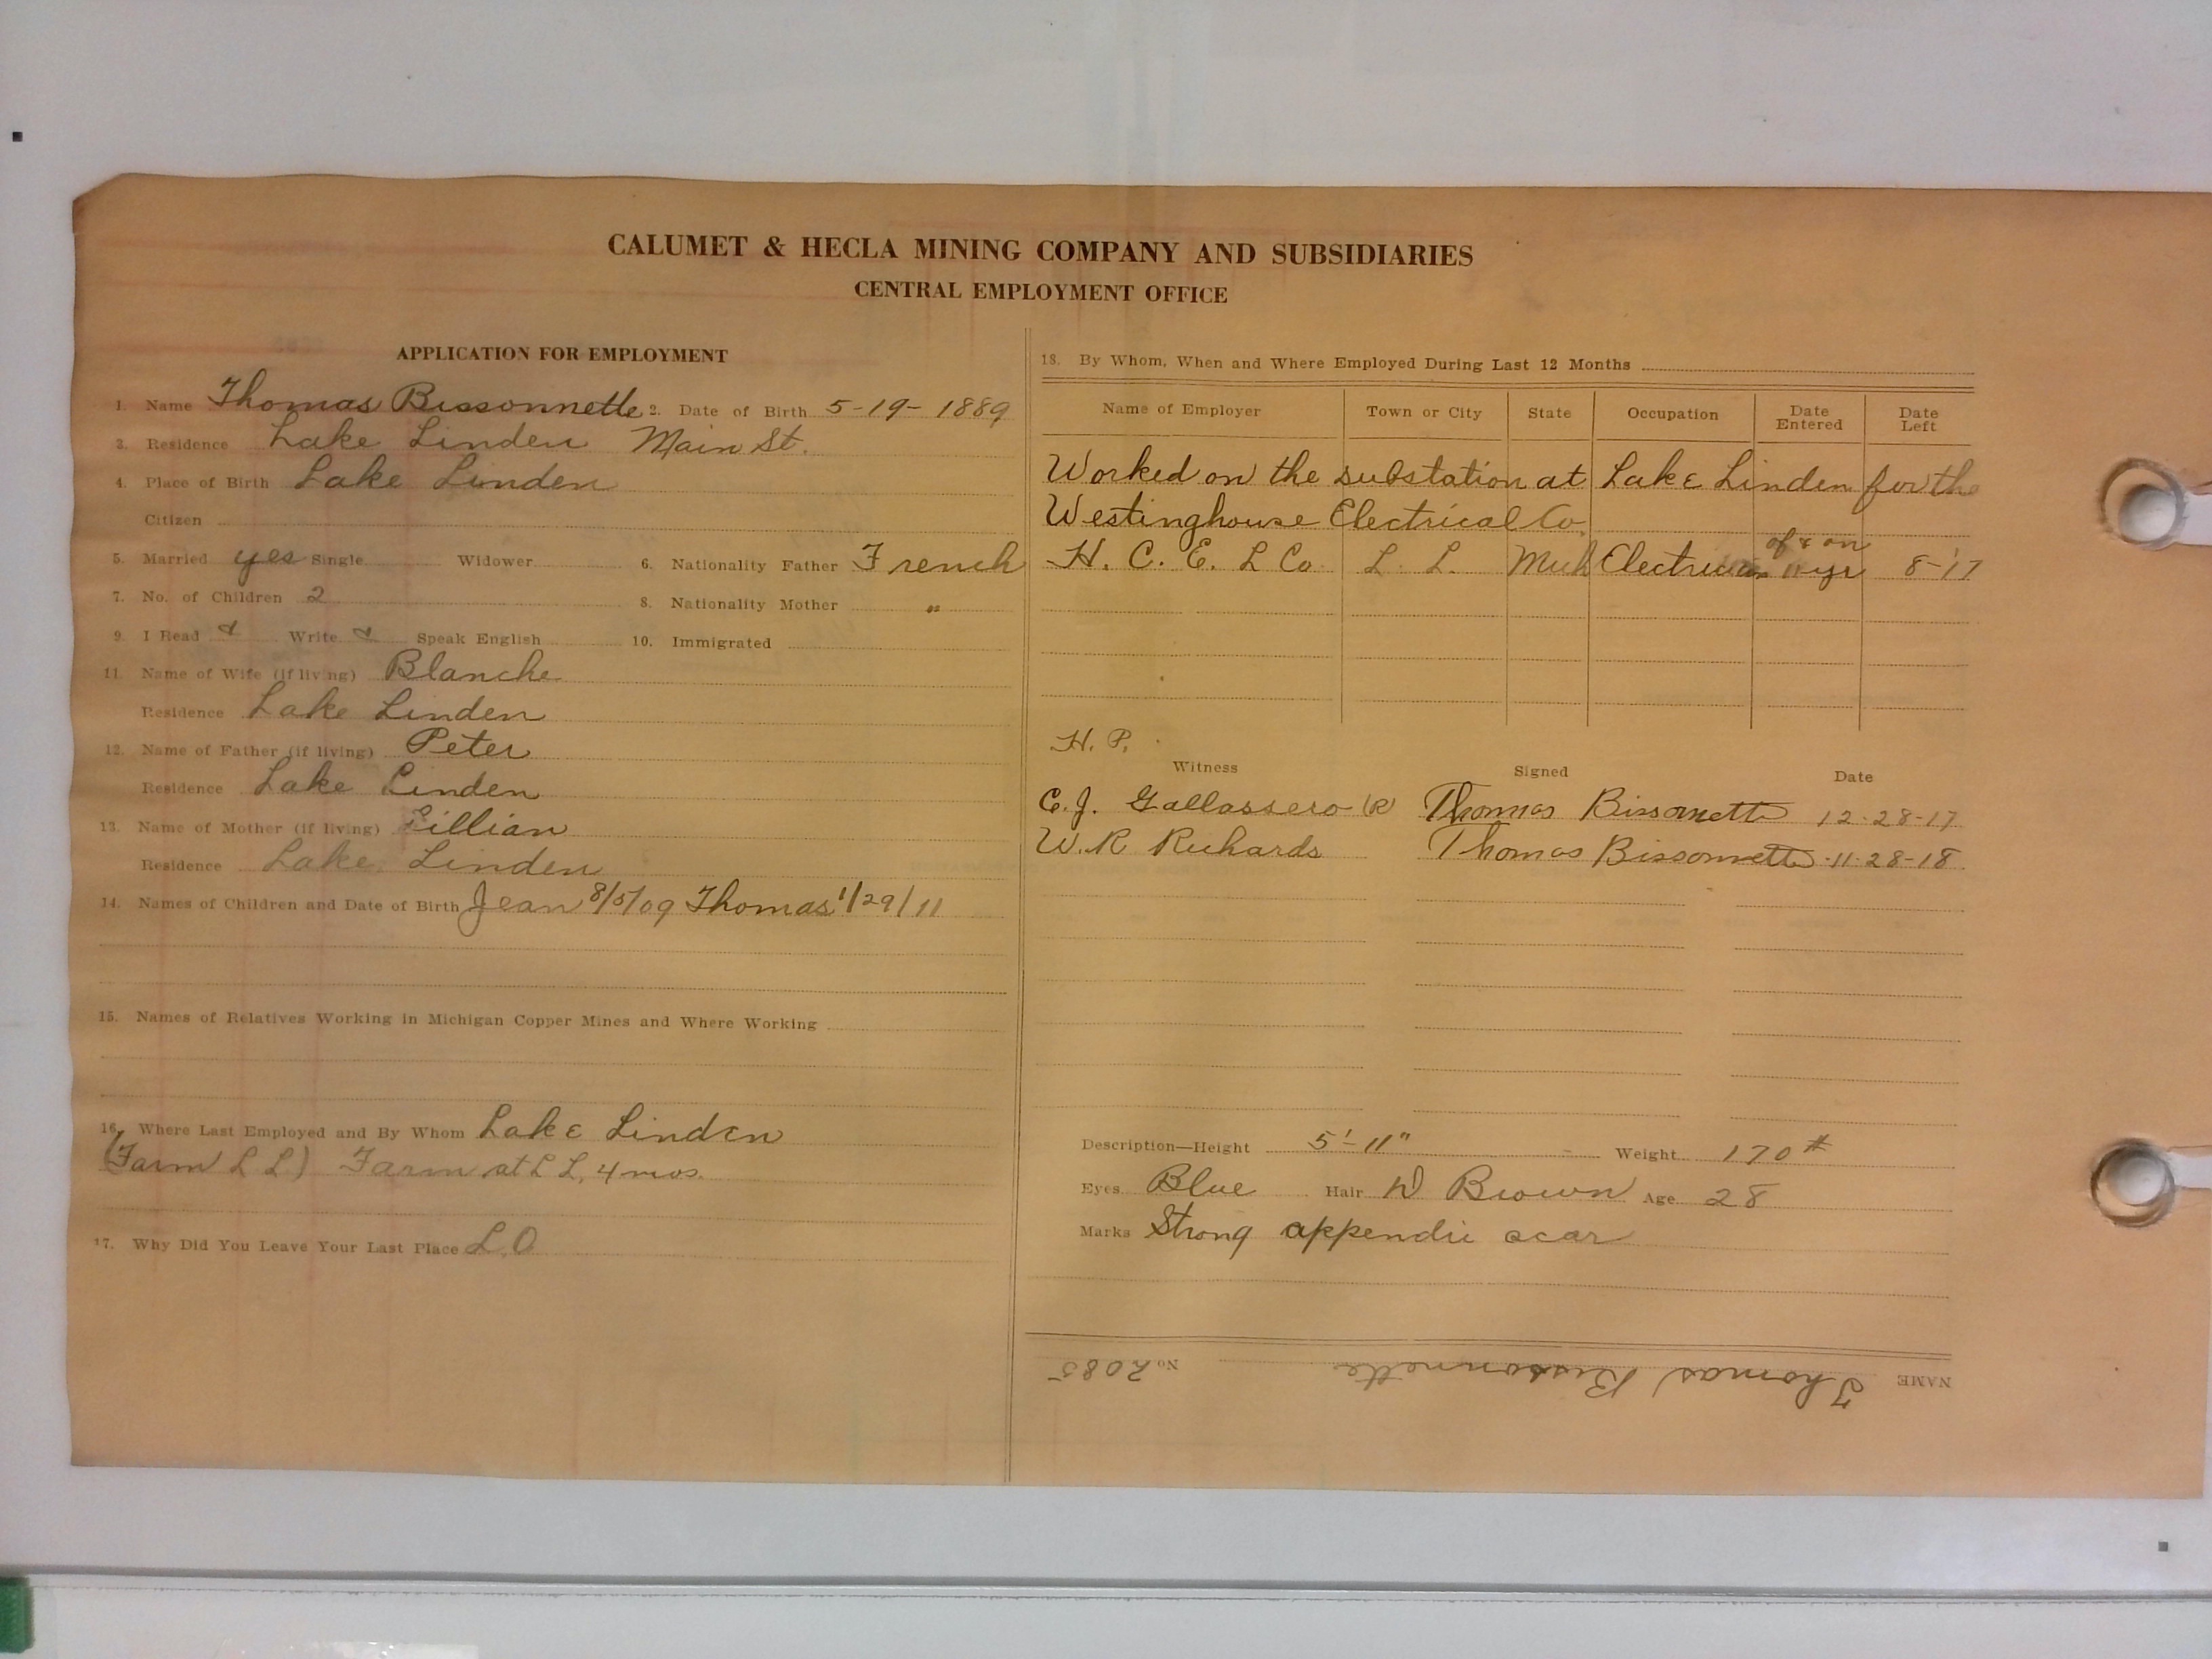 CALUMET & HECLA MINING COMPANY AND SUBSIDIARIES
CENTRAL EMPLOYMENT OFFICE
APPLICATION FOR EMPLOYMENT
1. Name Thomas Bissonnette 2. Date of Birth 5-19-1889
3. Residence Lake Linden Main St.
4. Place of Birth Lake Linden
Citizen
5. Married yes Single Widower 6. Nationality Father French
7. No. of Children 2 8. Nationality Mother "
9. I Read & Write & Speak English 10. Immigrated
11. Name of Wife (if living) Blanche
Residence Lake Linden
12. Name of Father (if living) Peter
Residence Lake Linden
13. Name of Mother (if living) Lillian
Residence Lake Linden
14. Names of Children and Date of Birth Jean 8/5/09 Thomas 1/29/11
15. Names of Relatives Working in Michigan Copper Mines and Where Working
16. Where Last Employed and By Whom Lake Linden
(Farm L L) Farm at L L, 4 mos.
17. Why Did You Leave Your Last Place L.O
18. By Whom, When and Where Employed During Last 12 Months
Name of Employer Town or City State Occupation Date Entered Date Left
Worked on the substation at Lake Linden for the
Westinghouse Electrical Co
H. C. E. L Co L. L. Mich Electrician of & on 11 yr 8-17
H. P.
Witness Signed Date
C. J. Gallassero (R) Thomas Bissonnette 12-28-17
W. R Richards Thomas Bissonnette 11-28-18
Description—Height 5'-11" Weight 170#
Eyes Blue Hair D Brown Age 28
Marks Strong appendic scar
NAME Thomas Bissonnette No 2085